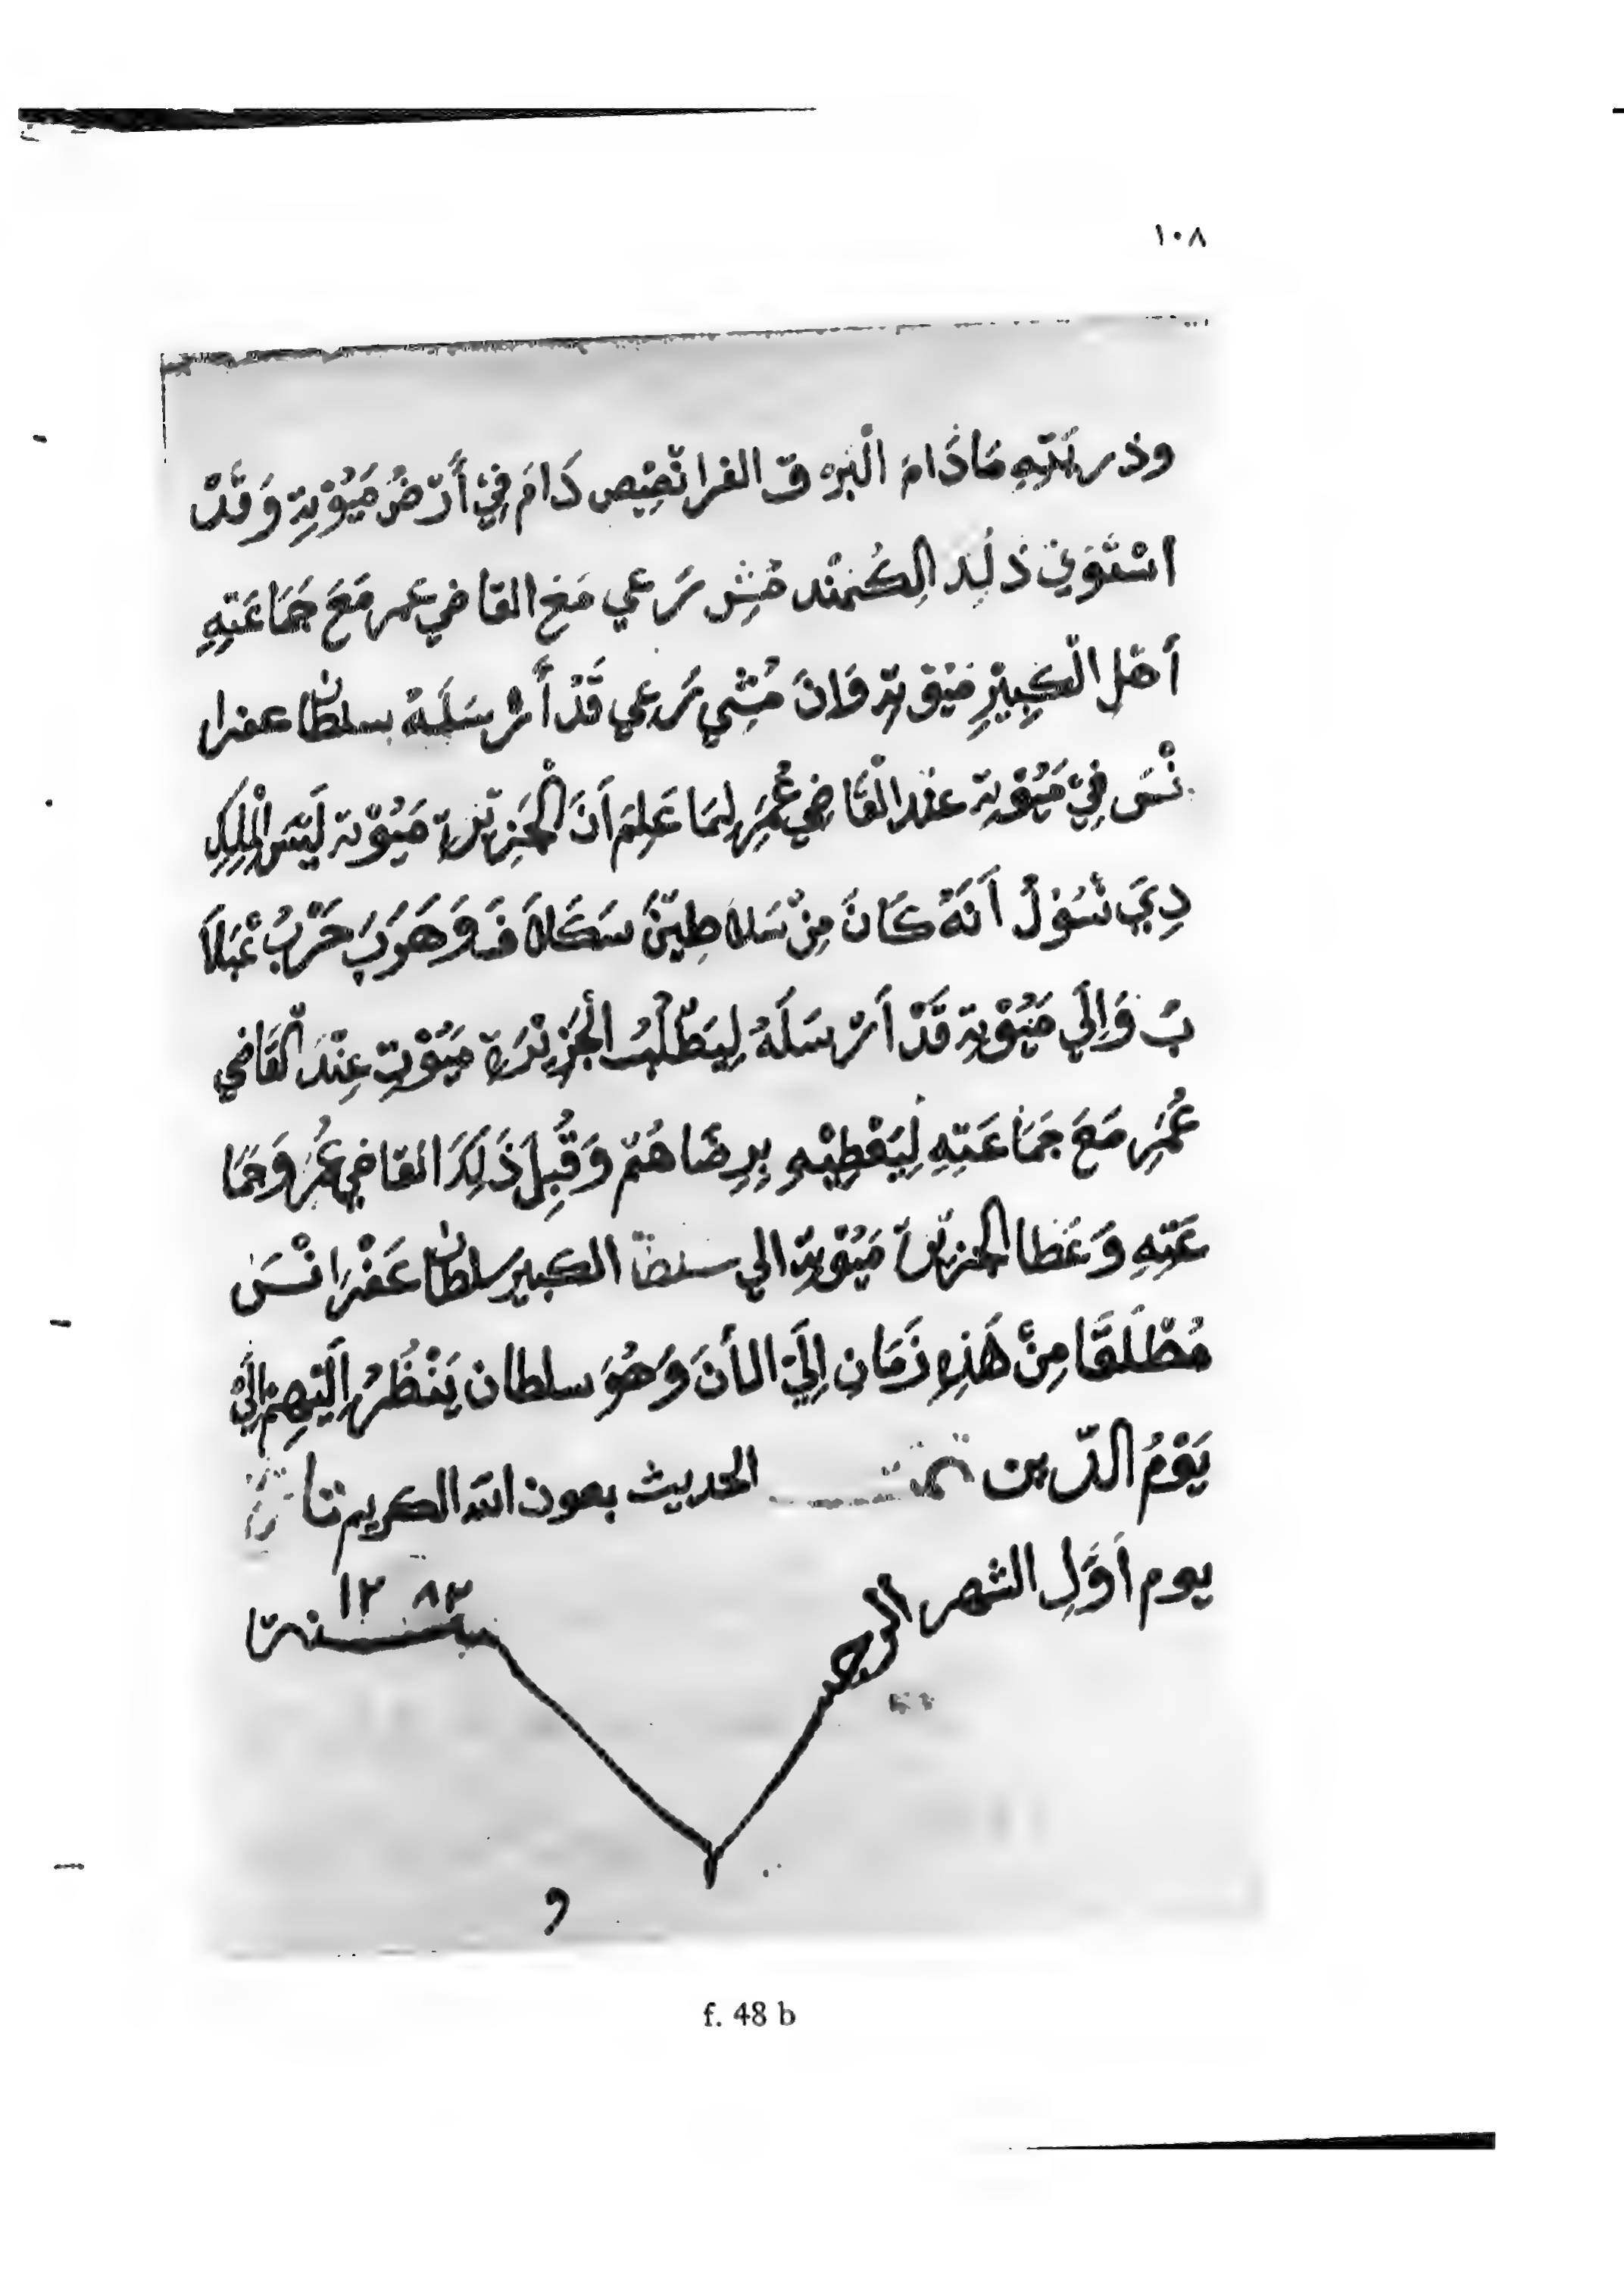 ١٠٨
وذريته مَادَامَ الْبرق الفرانْصِيْص دَامَ فِيْ أَرْضُ مَيُوْتِة وَقَدْ
اسْتَوَيْ ذَلِكَ الكُمَنْد مُشِ رَعي مَعَ القاضي عمر مَعَ جَمَاعَتِهِ
أهل الْكبيرِ مَيُوْتة وَانَ مُشِي رَعي قَدْ أَرْسَلَهُ سلطان عفرا
نْسَ فِيْ مَيُوْتة عند الْقَاضِي عُمَرِ لِمَا عَلِمَ اَنَ الجَزِيْرة مَيُوْتة لَيْسَ لْمِلِكِ
دِيَ نْسُوْلُ اَنَهُ كَانَ مِنْ سَلاطِيْنَ سَكَلاَفَ وَهَرَبَ حَرْبُ عْبَلاَ
بَ وَاِلَي مَيُوْتِة قَدْ اَرْسَلَهُ لِيَطْلُبُ الْجَزِيْرَة مَيُوْتِ عِنْدَ القَاضي
عُمَرِ مَعَ جَمَاعَتِهِ لِيَعْطِيْهِ بِرِضَاهُمْ وَقَبِلَ ذَلِكَ القاضي عُمَرُ وَجَمَا
عَتِهِ وَعَطا الجزيْرة مَيُوْتِة الي الكبير سلطان عَفْرَانْسَ
مُطْلَقًا مِنْ هَذِهِ زَمَانِ اِلَيْ الأنَ وَهُوَ سلطان يَنْظُرُ اِلَيْهِمْ اِلَيْ
يَوْمُ الدّين تمت الحديث بعون الله الكريم
يوم اَوَّلِ الشهر الرجب سنة ١٢٨٢
و
f. 48 b